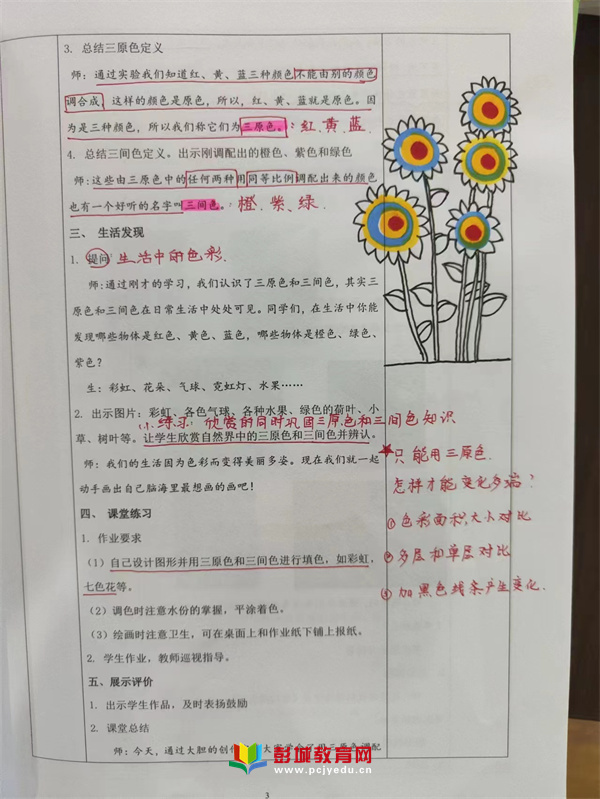 3. 总结三原色定义
师：通过实验我们知道红、黄、蓝三种颜色不能由别的颜色
调合成，这样的颜色是原色，所以，红、黄、蓝就是原色。因
为是三种颜色，所以我们称它们为三原色。：红.黄.蓝.
4. 总结三间色定义。出示刚调配出的橙色、紫色和绿色
师:这些由三原色中的任何两种用同等比例调配出来的颜色
也有一个好听的名字叫三间色。：橙.紫.绿
三、 生活发现
1. 提问：生活中的色彩.
师:通过刚才的学习，我们认识了三原色和三间色，其实三
原色和三间色在日常生活中处处可见。同学们，在生活中你能
发现哪些物体是红色、黄色、蓝色，哪些物体是橙色、绿色、
紫色？
生：彩虹、花朵、气球、霓虹灯、水果……
2. 出示图片：彩虹、各色气球、各种水果、绿色的荷叶、小
小练习：欣赏的同时巩固三原色和三间色知识
草、树叶等。让学生欣赏自然界中的三原色和三间色并辨认。
师：我们的生活因为色彩而变得美丽多姿。现在我们就一起
动手画出自己脑海里最想画的画吧！
★只能用三原色.
怎样才能变化多端？
①色彩面积,大小对比
②多层和单层对比
③加黑色线条产生变化.
四、 课堂练习
1. 作业要求
（1）自己设计图形并用三原色和三间色进行填色，如彩虹，
七色花等。
（2）调色时注意水份的掌握，平涂着色。
（3）绘画时注意卫生，可在桌面上和作业纸下铺上报纸。
2. 学生作业，教师巡视指导。
五、展示评价
1. 出示学生作品，及时表扬鼓励
2. 课堂总结
师：今天，通过大胆的创作
彭城教育网
www.pcjyedu.cn
3